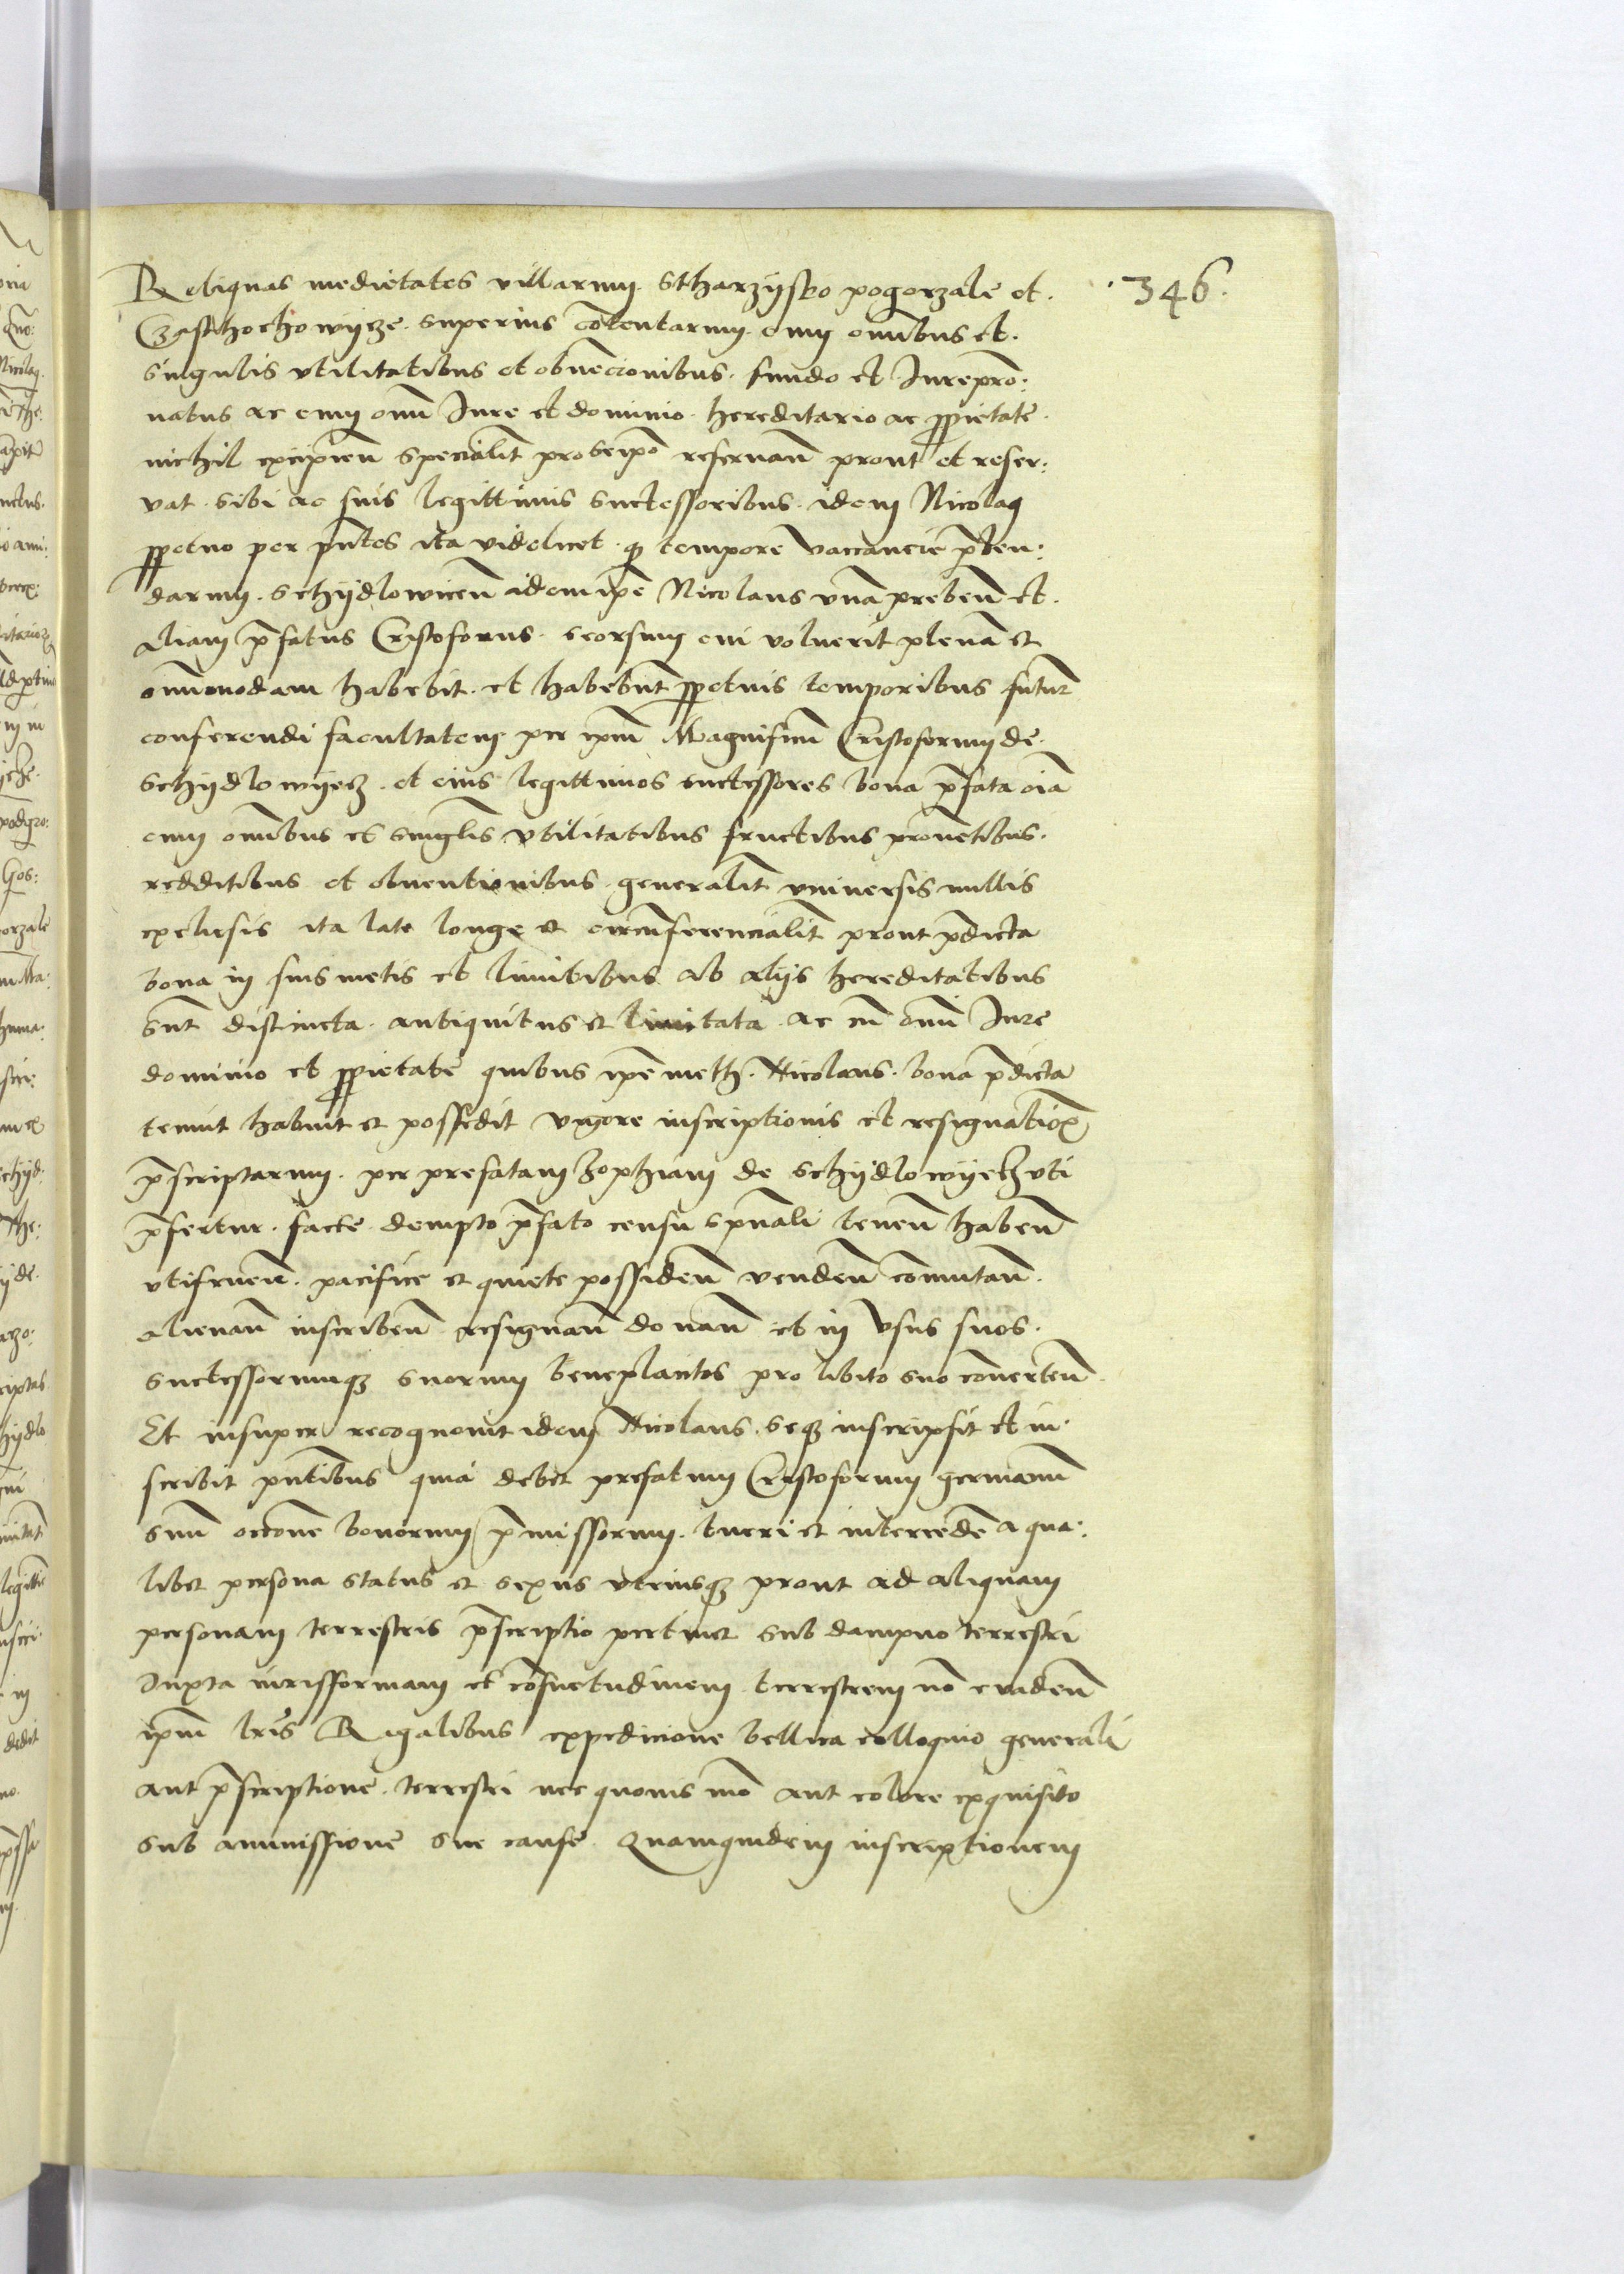 346.
Reliquas medietates villarum. Stharzijsko pogorzale et.
Czasthochowijcze. superius cōtentarum. cum om̄ibus et.
singulis vtilitatibus et obuēcionibus. fundo et Iurepr̄o:
natus ac cum om̄i Iure et dominio. hereditario ac ꝓprietate.
nichil excipien̄ specialit̄ pro seip̄o reseruan̄ prout et reser:
vat. sibi ac suis legittimis suctessoribus. idem Nicolaꝰ
ꝑpetuo per pn̄tes ita videlicet. ꝙ tempore vaccancie p̄ben:
darum. Schijdlowicen̄ idem ip̄e Nicolaus vnā preben̄ et.
aliam p̄fatus Cristoforus. seorsum cui voluerit plenā et
om̄imodam habebit. et habebūt ꝑpetuis temporibus futur̄
conferendi facultatem per ip̄m Magnificū Cristoforum de.
Schijdlowijecz. et eius legittimos suctessores bona p̄fata oīa
cum om̄ibus et singl̄is vtilitatibus fructibus prouētibus.
redditibus et obuentionibus. generalit̄ vniuersis nullis
exclusis ita late longe et circūferencialit̄ prout p̄dicta
bona in suis metis et limitibus ab alijs hereditatibus
sūt distincta. antiquitus et limitata. ac cū om̄i Iure
dominio et ꝓprietate quibus ip̄emeth. Nicolaus. bona p̄dicta
tenuit habuit et possedit vigore inscriptionis et resignationū
p̄scriptarum. per prefatam Zophiam de Schijdlowijecz vti
p̄fertur. facte dempto p̄fato censu sp̄uali tenen̄ haben̄
vtifruen̄. pacifice et quiete possiden̄ venden̄ com̄utan̄.
alienan̄ inscriben̄ resignan̄ donan̄ et in vsus suos.
suctessorumqꝫ suorum beneplacitos pro libito suo conuerten̄.
Et insuper recognouit idem Nicolaus. seqꝫ inscripsit et in:
scribit pn̄tibus quia debet prefatum Cristoforum germanū
suū occōne bonorum p̄missorum. tueri et intercedē a qua:
libet persona status et sexus vtriusqꝫ prout ad aliquam
personam terrestris p̄scriptio pertinet sub dampno terrestri
Iuxta iurisformam et cōsuetudinem terrestrem nō euaden̄
ip̄m lr̄is Regalibus expedicione bellica colloquio generali
aut p̄scriptione. terrestri nec quouis mō aut colore exquisito
sub ammissione sue cause. Quamquidem inscriptionem